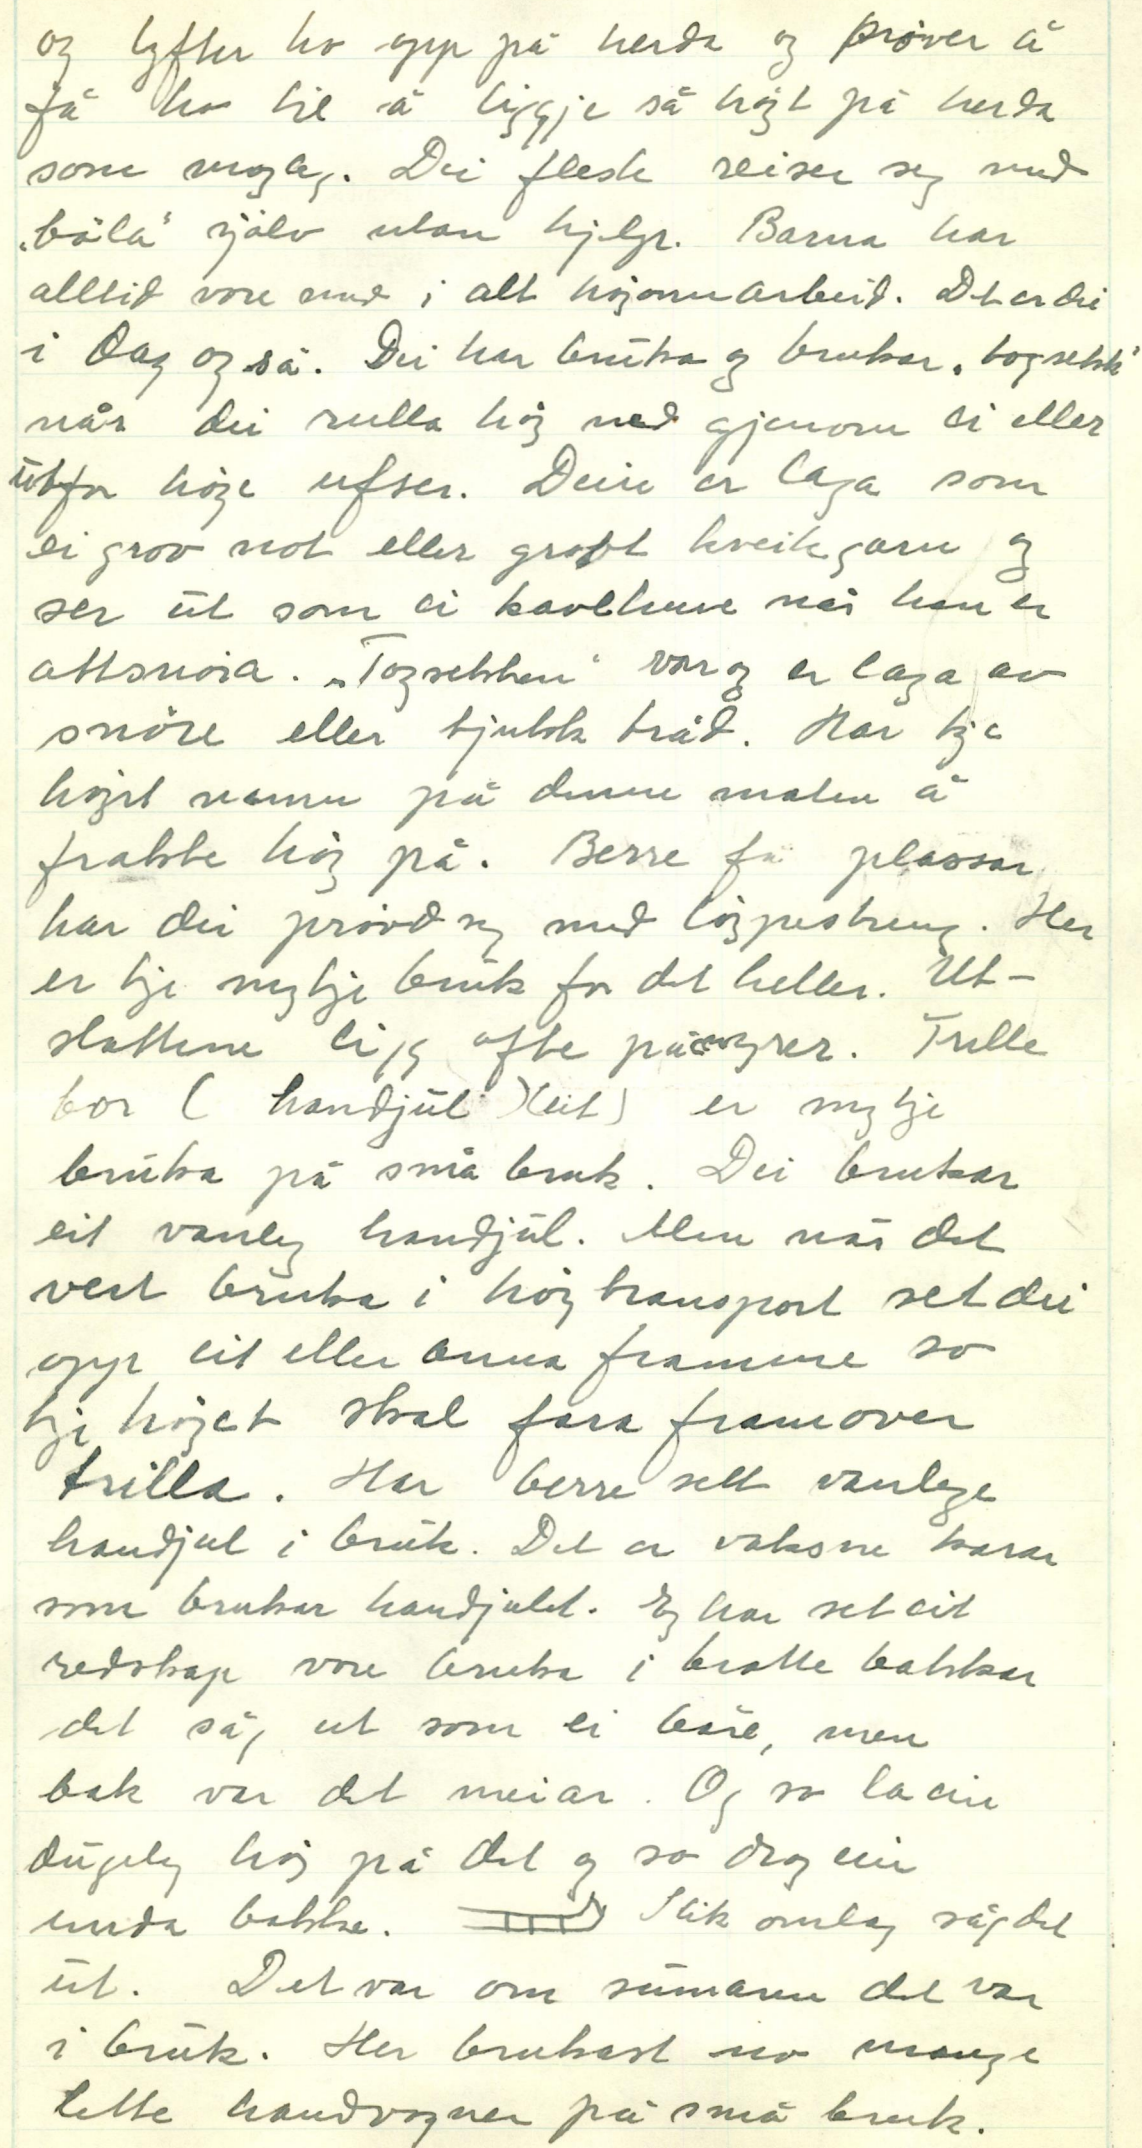 og lyfter ho opp på herda og prøver å
få ho til å liggje så højt på herda
som mogleg. Dei fleste reiser seg med
„båla" sjølv utan hjelp. Barna har
alltid vore med i alt højonnarbeid. Det er dei
i dag også. Dei har bruka og brukar „togsekk"
når dei rulla høj ned gjenom ei eller
utfor höje ufser. Deire er laga som
ei grov not eller grovt kveikgarn og
ser ut som ei kavlhuve når han er
attsnöra. „Togsekken" var og er laga av
snöre eller tjukk tråd. Har kje
højrt namn på denne måten å
frakte høj på. Berre få plassar
har dei prövd seg med löypestreng. Her
er kje mykje bruk for det heller. Ut-
slåttene ligg ofte på myrer. Trille
bor ( handjul )(eit) er mykje
bruka på små bruk. Dei brukar
eit vanleg handjul. Men når det
vert bruka i høj transport set dei
opp eit eller anna framme so
kje højet skal fara framover
trilla. Har berre sett vanlege
handjul i bruk. Det er vaksne karar
som brukar handjulet. Eg har set eit
redskap vore bruka i bratte bakkar
det såg ut som ei båre, men
bak var det meiar. Og so la ein
dugeleg høj på det og so drog ein
unda bakke. Slik omlag såg det
ut. Det var om sumaren det var
i bruk. Her brukast no mange
lette handvogner på små bruk.